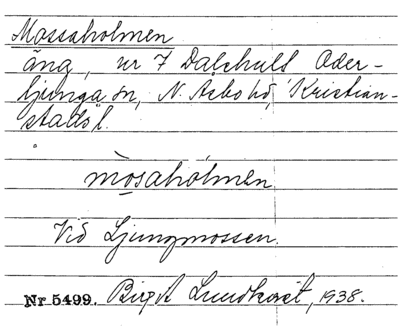 Mossaholmen
äng, nr 7 Dalshult Oder-
ljunga sn, N. Åsbo hd, Kristian-
stads l.
mòsahólmen
Vid Ljungmossen.
Nr 5499. Birgit Lundkvist, 1938.